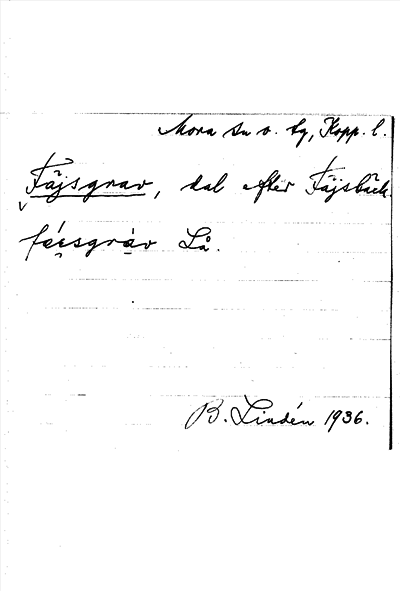 Mora sn o. tg, Kopp. l.
Fäjsgrav, dal efter Fäjsbäck.
Lå.
B. Lindén 1936.